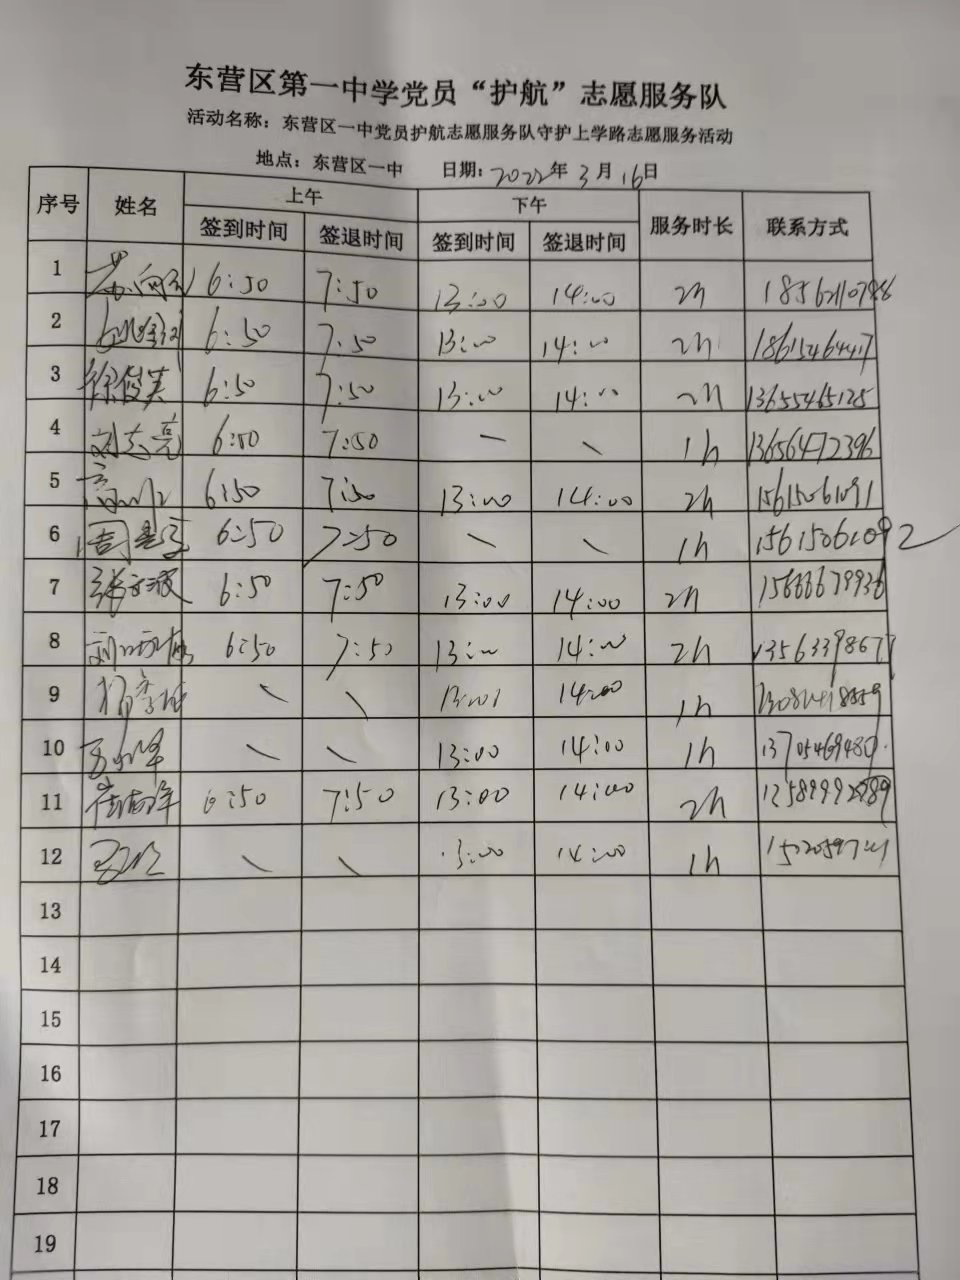 东营区第一中学党员“护航”志愿服务队
活动名称：东营区一中党员护航志愿服务队守护上学路志愿服务活动
地点：东营区一中 日期：2022年3月16日
序号 姓名 上午 下午 服务时长 联系方式
签到时间 签退时间 签到时间 签退时间
1 6:50 7:50 13:00 14:00 2h
2 6:50 7:50 13:00 14:00 2h
3 徐俊英 6:50 7:50 13:00 14:00 2h 13655465125
4 刘志亮 6:50 7:50 — \ 1h 13656472396
5 6:50 7:50 13:00 14:00 2h 15615061091
6 6:50 7:50 \ \ 1h 15615061092
7 6:50 7:50 13:00 14:00 2h 15666679936
8 6:50 7:50 13:00 14:00 2h
9 \ \ 13:00 14:00 1h
10 \ \ 13:00 14:00 1h 13705469480
11 6:50 7:50 13:00 14:00 2h
12 \ \ 13:00 14:00 1h
13
14
15
16
17
18
19